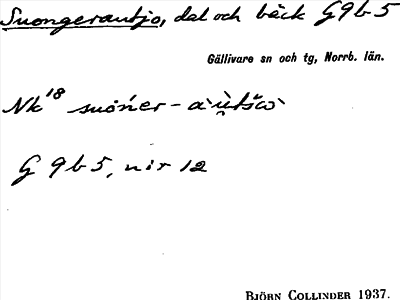 Suongerautjo, dal och bäck G9b5
Gällivare sn och tg, Norrb. län.
Nk18
G 9b5, nir 12
BJÖRN COLLINDER 1937.